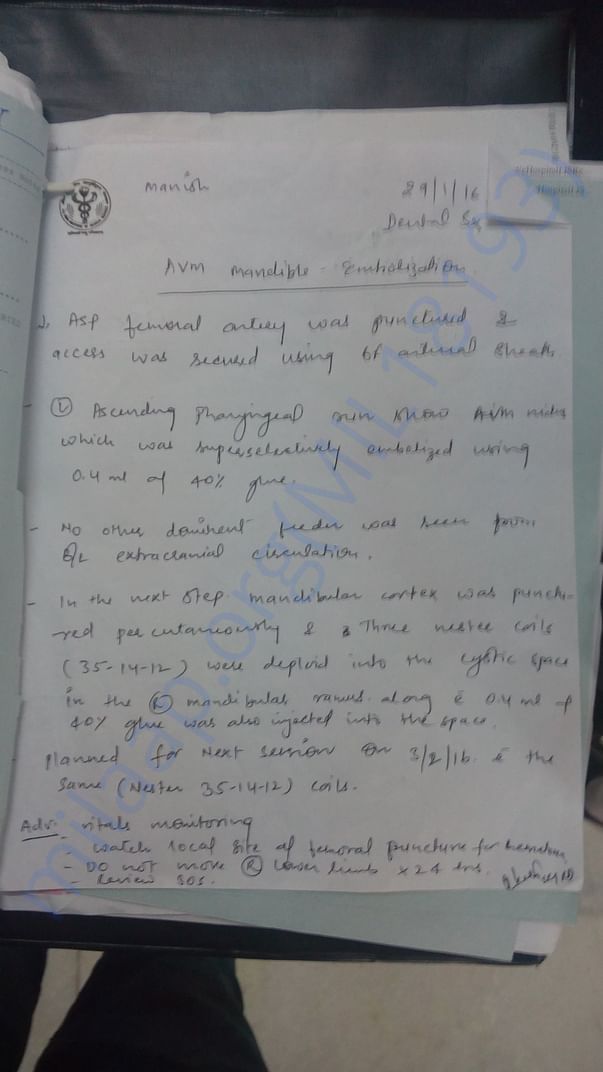 Manish
29/1/16
Dental Sx
AVM Mandible - Embolization.
ASP femoral artery was punctured &
access was secured using 6F arterial Sheath.
- Ⓛ Ascending pharyngeal run show AVM nidus
which was superselectively embolized using
0.4 ml of 40% glue.
- No other dominent feeder was seen from
B/L extracranial circulation.
- In the next step mandibular cortex was punctu-
-red percutaneously & 3 Three nester coils
(35-14-12) were deploid into the cystic space
in the Ⓡ mandibular ramus along c̄ 0.4 ml of
40% glue was also injected into the space.
- Planned for Next Session on 3/2/16 c̄ the
same (Nester 35-14-12) coils.
Adv. - vitals monitoring
- watch local site of femoral puncture for hematoma
- DO not move Ⓡ lower limb x 24 hrs.
- Review SOS.
milaap.org(MIL18193)